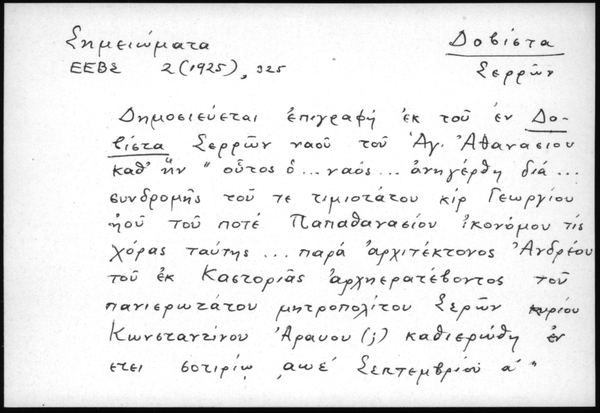 Σημειώματα
Δοβίστα
ΕΕΒΣ 2 (1925), 325
Σερρῶν
Δημοσιεύεται ἐπιγραφή ἐκ τοῦ ἐν Δο-
βίστα Σερρῶν ναοῦ τοῦ Ἁγ. Ἀθανασίου
καθ' ἥν " οὗτος ὁ ... ναός ... ἀνηγέρθη διά ...
συνδρομῆς τοῦ τε τιμιοτάτου κίρ Γεωργίου
ἡοῦ τοῦ ποτέ Παπαθανασίου ἰκονόμου τίς
χόρας ταύτης ... παρά ἀρχιτέκτονος Ἀνδρέου
τοῦ ἐκ Καστοριᾶς ἀρχηερατέβοντος τοῦ
πανιερωτάτου μητροπολίτου Σερῶν κυρίου
Κωνσταντίνου (;) καθιερώθη ἐν
ετει σοτιρίῳ ͵αωέ Σεπτεμβρίου ά "